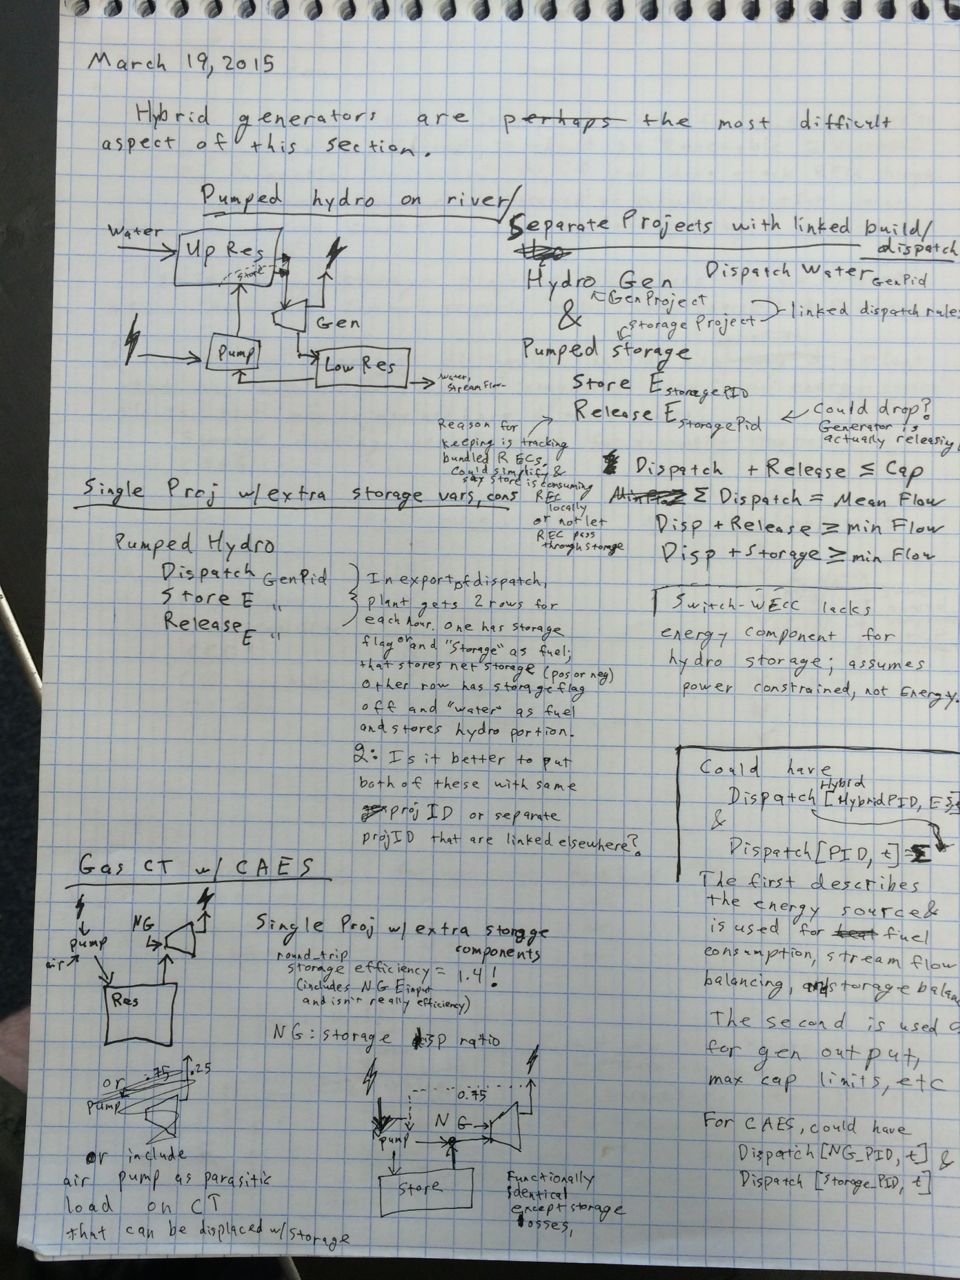 March 19, 2015
Hybrid generators are perhaps the most difficult
aspect of this section.
Pumped hydro on river/
Water
Up Res
Gen
Pump
Low Res
water,
streamflow
Separate Projects with linked build/
dispatch
Hydro Gen
Dispatch Water GenPid
GenProject
&
Storage Project
linked dispatch rules
Pumped storage
Store E StoragePID
Release E StoragePid
Could drop?
Generator is
actually releasing
Reason for
keeping is tracking
bundled RECs.
Could simplify &
say store is consuming
REC
locally
or not let
REC pass
through storage
Dispatch + Release ≤ Cap
Σ Dispatch = Mean Flow
Disp + Release ≥ min Flow
Disp + Storage ≥ min Flow
Single Proj w/extra storage vars, cons
Pumped Hydro
Dispatch GenPid
Store E "
Release E "
In export of dispatch,
plant gets 2 rows for
each hour. one has storage
flag or and "Storage" as fuel;
that stores net storage (pos or neg)
Other row has storage flag
off and "water" as fuel
and stores hydro portion.
Q: Is it better to put
both of these with same
proj ID or separate
projID that are linked elsewhere?
Switch-WECC lacks
energy component for
hydro storage; assumes
power constrained, not Energy.
Could have
Hybrid
Dispatch [HybridPID, ES
&
Dispatch [PID, t] = Σ
The first describes
the energy source &
is used for fuel
consumption, stream flow
balancing, and storage
The second is used
for gen output,
max cap limits, etc
For CAES, could have
Dispatch [NG_PID, t] &
Dispatch [Storage_PID, t]
Gas CT w/ CAES
NG
pump
air
Res
Single Proj w/extra storage
components
round_trip
storage efficiency = 1.4!
(includes NG E input
and isn't really efficiency)
NG: storage disp ratio
or
.75
.25
pump
or include
air pump as parasitic
load on CT
that can be displaced w/storage
0.75
NG
pump
Store
Functionally
identical
except storage
losses,